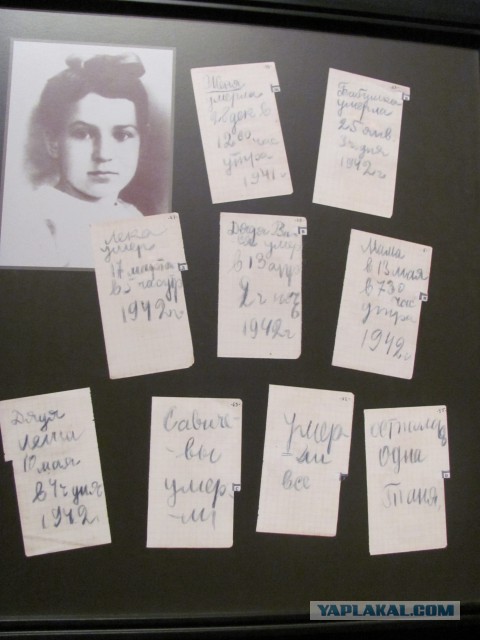 Женя
умерла
28 дек в
12.00 час
утра
1941 г
Бабушка
умерла
25 янв.
3 ч. дня
1942 г
Лека
умер
17 марта
в 5 час утр
1942 г.
Дядя Ва
ся умер
в 13 апр
2 ч ноч
1942 г
Мама
в 13 мая
в 7 30
час
утра
1942 г.
Дядя
Леша
10 мая
в 4 ч дня
1942 г
Савиче-
-вы
умер-
-ли
Умер-
ли
все
осталась
одна
Таня.
YAPLAKAL.COM